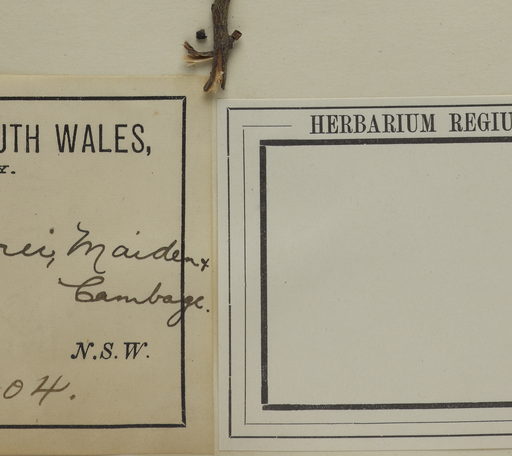 UTH WALES,
Y.
rei, Maiden &
Cambage.
N.S.W.
04.
HERBARIUM REGIU